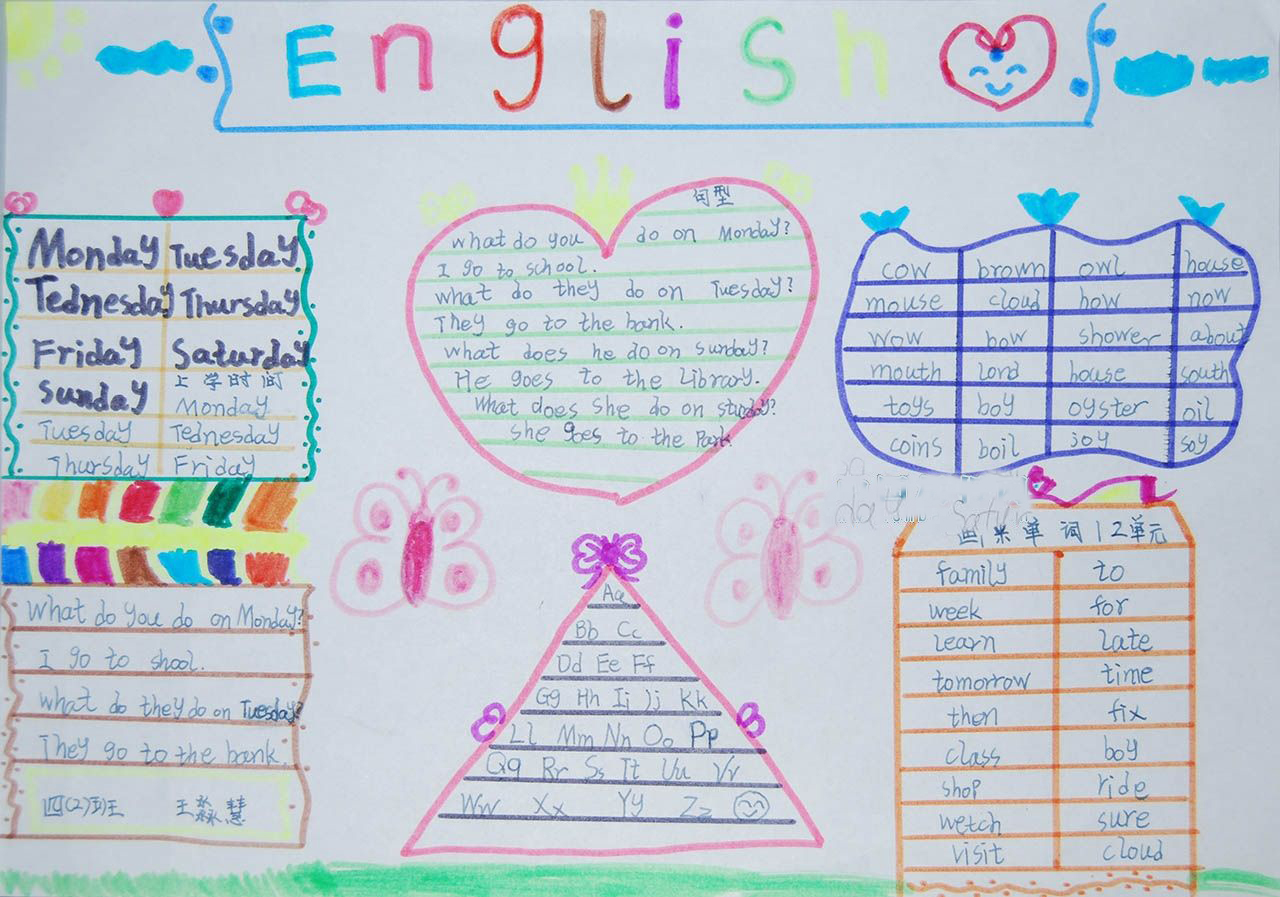 English
Monday Tuesday
Tednesday Thursday
Friday Saturday
Sunday 上学时间
Monday
Tuesday Tednesday
Thursday Friday
What do you do on Monday?
I go to shool.
what do they do on Tuesday?
They go to the bank.
四(2)班 王淼慧
句型
what do you do on Monday?
I go to school.
what do they do on Tuesday?
They go to the bank.
what does he do on sunday?
He goes to the Library.
What does she do on
she goes to the Park
Aa
Bb Cc
Dd Ee Ff
Gg Hh Ii Jj Kk
Ll Mm Nn Oo Pp
Qq Rr Ss Tt Uu Vv
Ww Xx Yy Zz
cow brown owl house
mouse cloud how now
wow bow shower about
mouth lord house south
toys boy oyster oil
coins boil joy soy
day
单词12单元
family to
week for
learn late
tomorrow time
then fix
class boy
shop ride
wetch sure
visit cloud